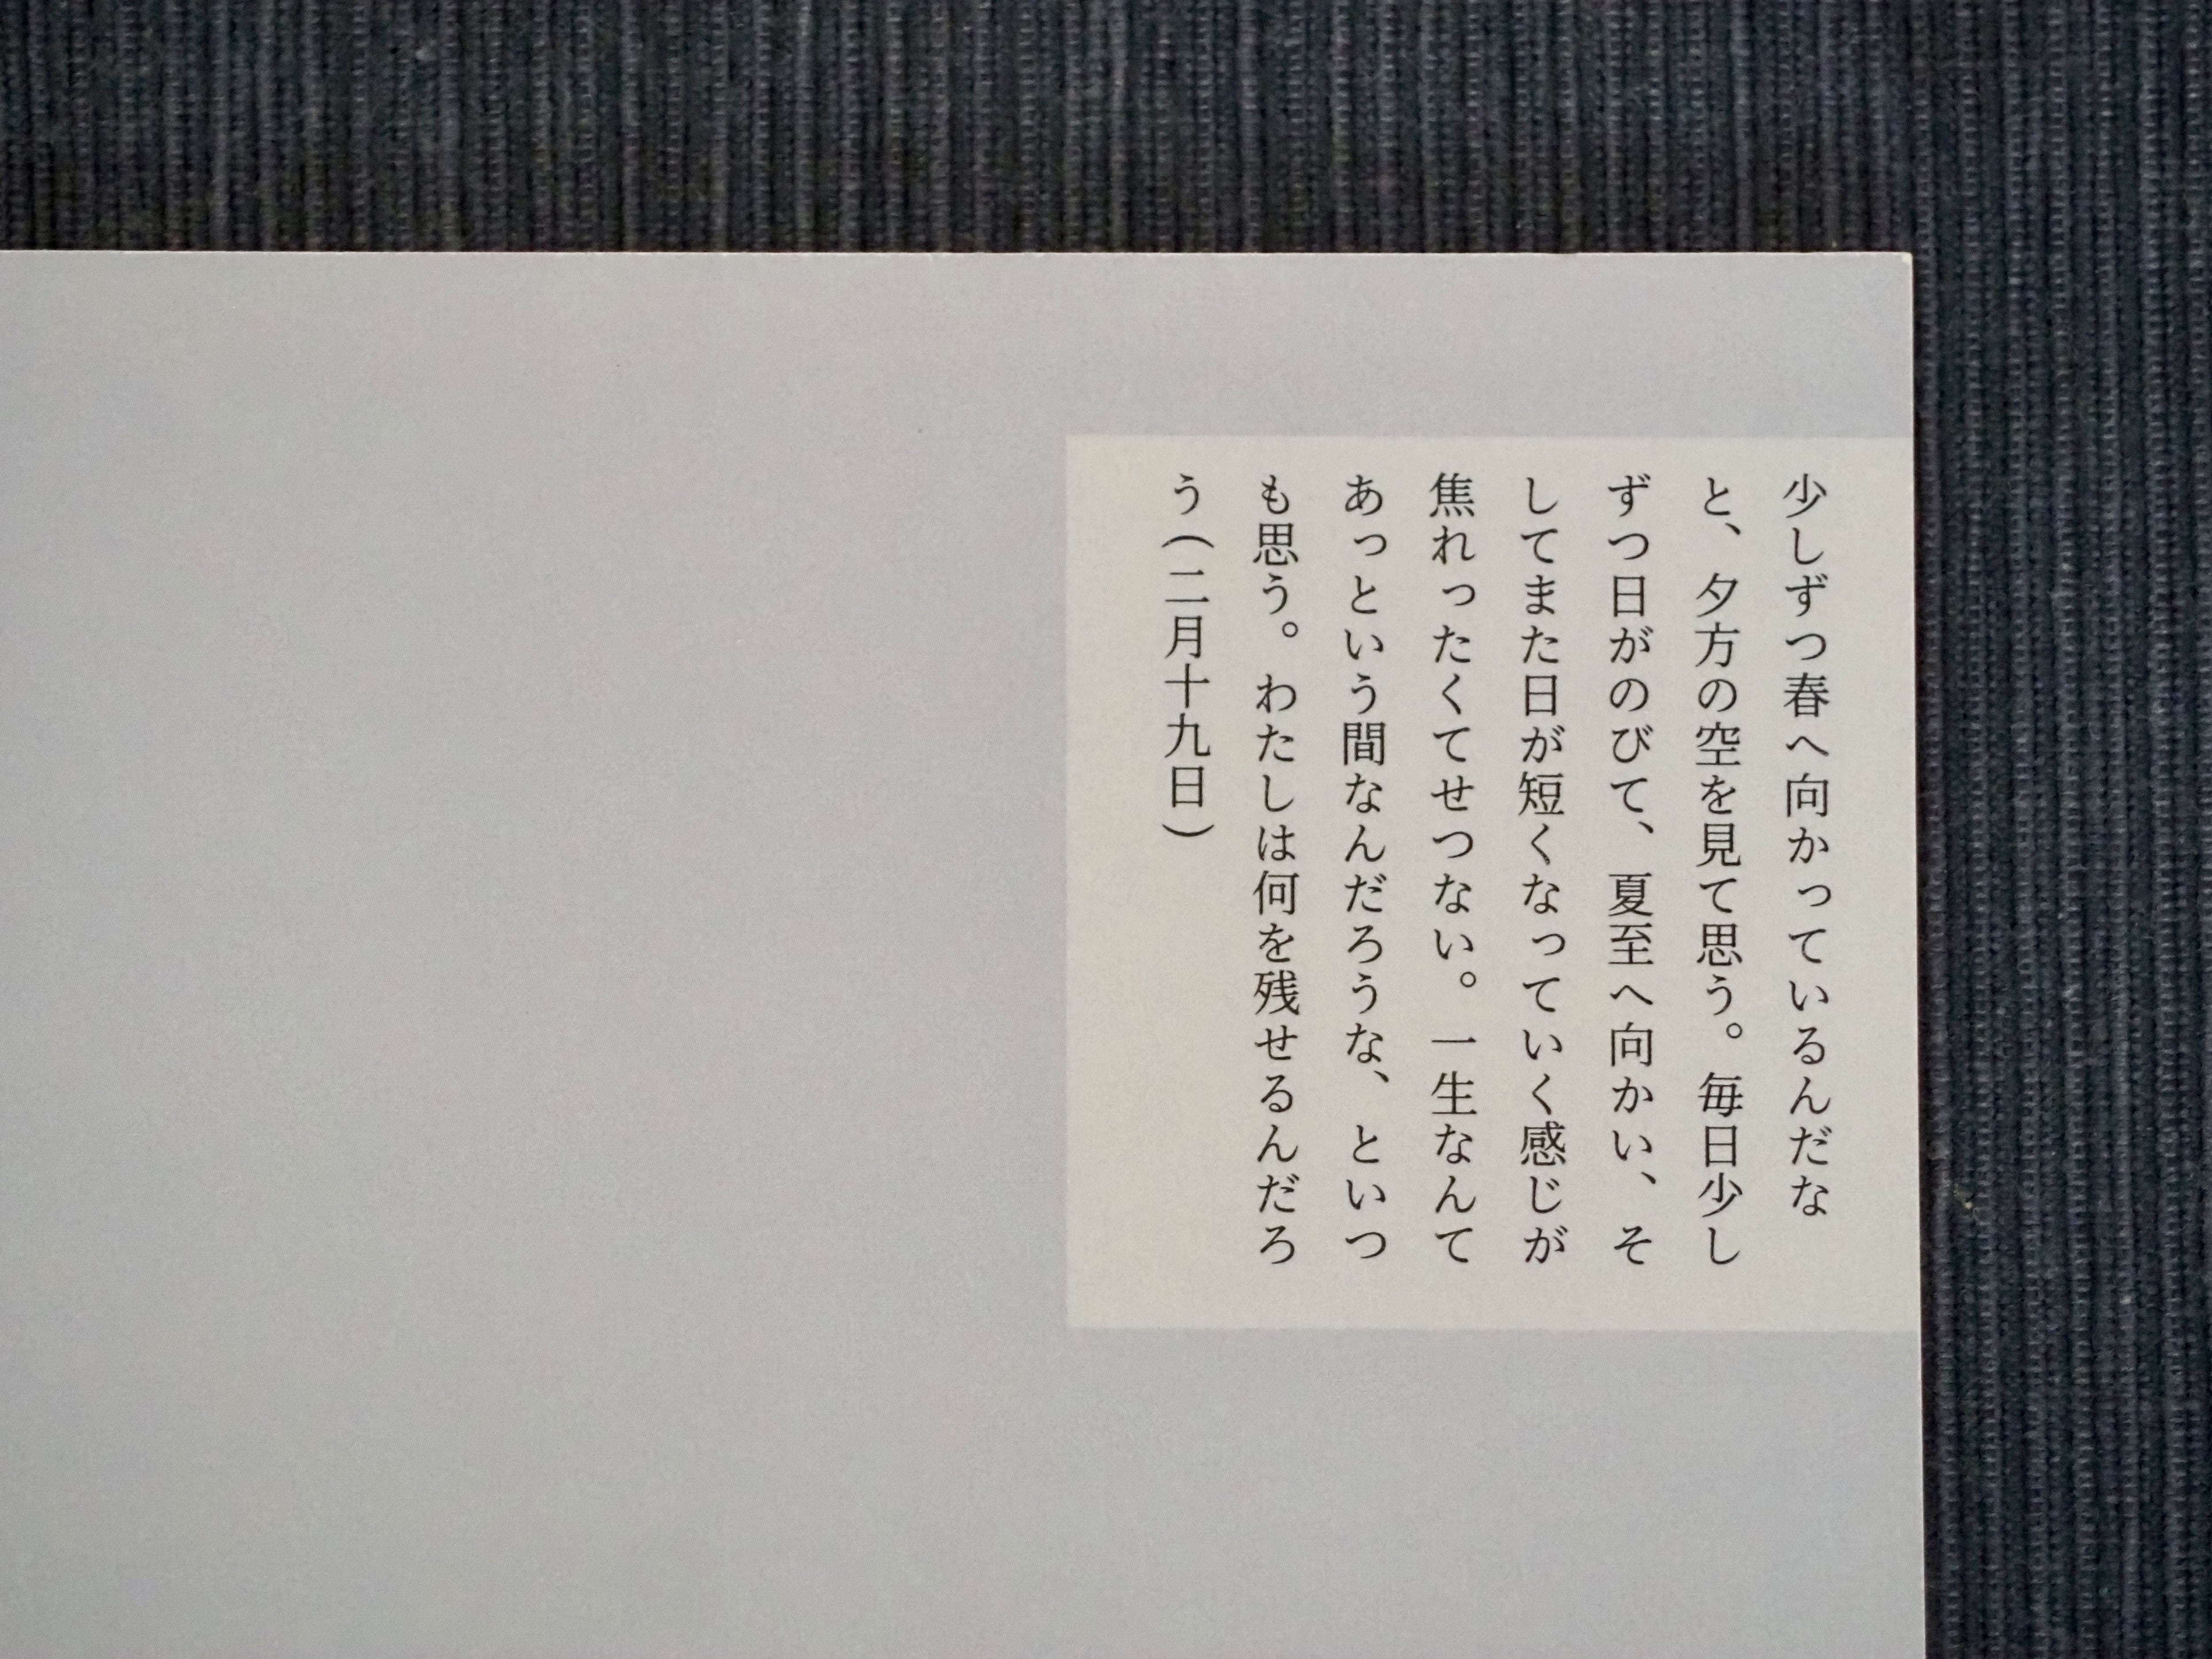 少しずつ春へ向かっているんだな
と、夕方の空を見て思う。毎日少し
ずつ日がのびて、夏至へ向かい、そ
してまた日が短くなっていく感じが
焦れったくてせつない。一生なんて
あっという間なんだろうな、といつ
も思う。わたしは何を残せるんだろ
う(二月十九日)